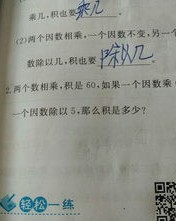 乘几,积也要乘几。
(2)两个因数相乘,一个因数不变,另一个
数除以几,积也要 除以几
2.两个因数相乘,积是 60,如果一个因数乘
一个因数除以 5,那么积是多少?
轻松一练